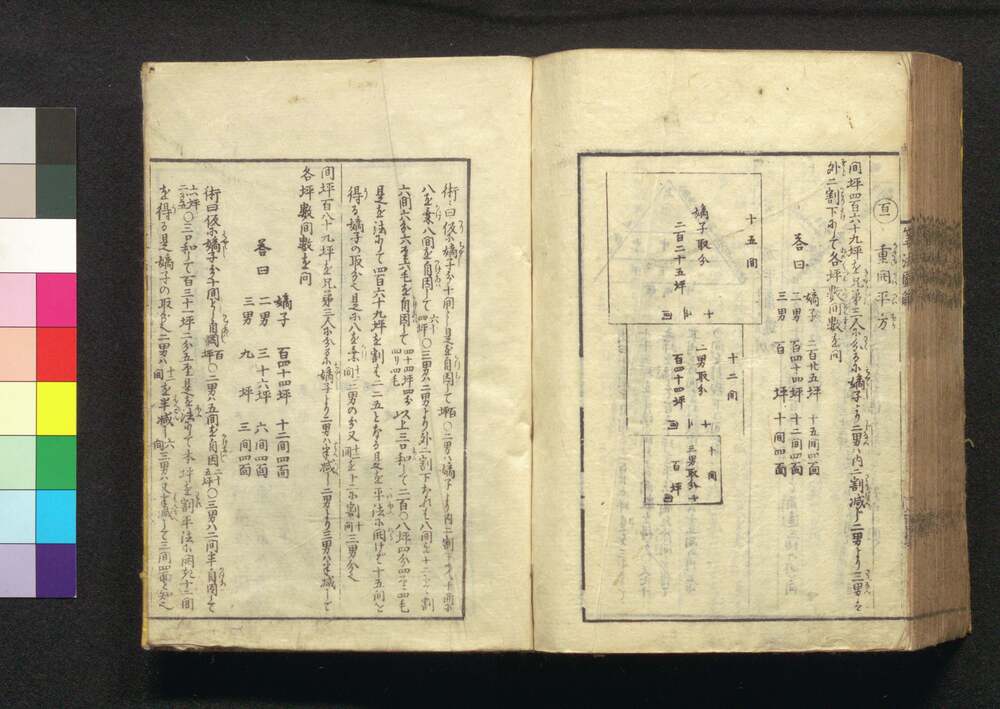 亘 重開平方
間坪四百六十九坪を兄弟三人に分る嫡子より二男ハ内二割減し二男より三男は
外二割下にて各坪数間数を問
嫡子 二百廿五坪 十五間四面
答曰 二男 百四十四坪 十二間四面
三男 百坪 十間四面
十五間
嫡子取分
二百二十五坪
十二間
二男取分
百四十四坪
十間
三男取分
百坪
術ニ曰仮に嫡子分十間と是を自因して百坪〇二男ハ嫡子より内二割下
八を乗八間を自因して六十四坪〇三男ハ二男より外二割下なれは八間を十二にて割
六間六分六六毛を自因して四十四坪四分四リ四毛以上三口和して二百〇八坪四分四リ四毛
是を法にして四百六十九坪を割は二二五となる是を平法に開けて十五間を
得る嫡子の取分也是に八を乗十二間二男の分又十二間を十二に割十間三男分也
間坪百八十九坪を兄弟三人に分る嫡子より二男ハ半減し二男より三男ハ半減して
各坪数間数を問
嫡子 百四十四坪 十二間四面
答曰 二男 三十六坪 六間四面
三男 九坪 三間四面
術曰仮に嫡子分十間として自因百坪〇二男ハ五間を自因二十五坪〇三男ハ二間半自因して
六坪二分五〇三口和して百三十一坪二分五是を法にして本坪を割平法に開十二間
を得る是嫡子の取分也二男ハ十二間を半減し六間三男ハ又半減して三間四面と知へし